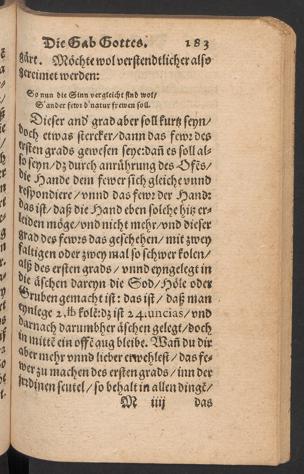 Die Gab Gottes. 183
gårt. Möchte wol verstendtlicher also
gereimet werden:
So nun die Sinn vergleicht sind wol/
S'ander fewr d'natur frewen soll.
Dieser and' grad aber soll kurtz seyn/
doch etwas stercker/dann das fewr des
ersten grads gewesen seye: dañ es soll al-
so seyn/dz durch anrührung des Ofẽs/
die Hande dem fewer sich gleiche vnnd
respondiere/vnnd das fewr der Hand:
das ist/daß die Hand eben solche hitz er-
leiden möge/vnd nicht mehr/vnd dieser
grad des fewrs das geschehen/mit zwey
faltigen oder zwey mal so schwer kolen/
alß des ersten grads/vnnd eyngelegt in
die åschen dareyn die Sod/Höle oder
Gruben gemacht ist: das ist/daß man
eynlege 2. ℔ kolẽ: dz ist 24. uncias/vnd
darnach darumbher åschen gelegt/doch
in mittẽ ein offẽ aug bleibe. Wañ du dir
aber mehr vnnd lieber erwehlest/das fe-
wer zu machen des ersten grads/inn der
jrrdinen seutel/so behalt in allen dingẽ/
M iiij das